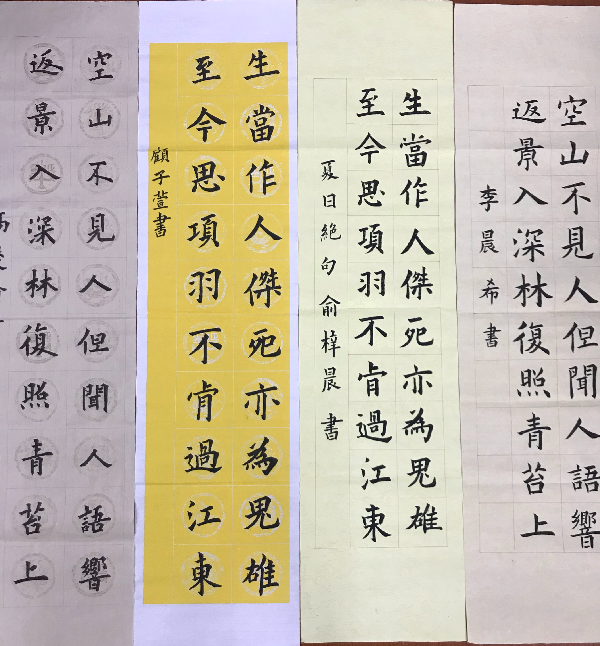 空山不見人但聞人語響
返景入深林復照青苔上
李晨希書
生當作人傑死亦為鬼雄
至今思項羽不肯過江東
夏日絶句俞梓晨書
生當作人傑死亦為鬼雄
至今思項羽不肯過江東
顧子萱書
空山不見人但聞人語響
返景入深林復照青苔上